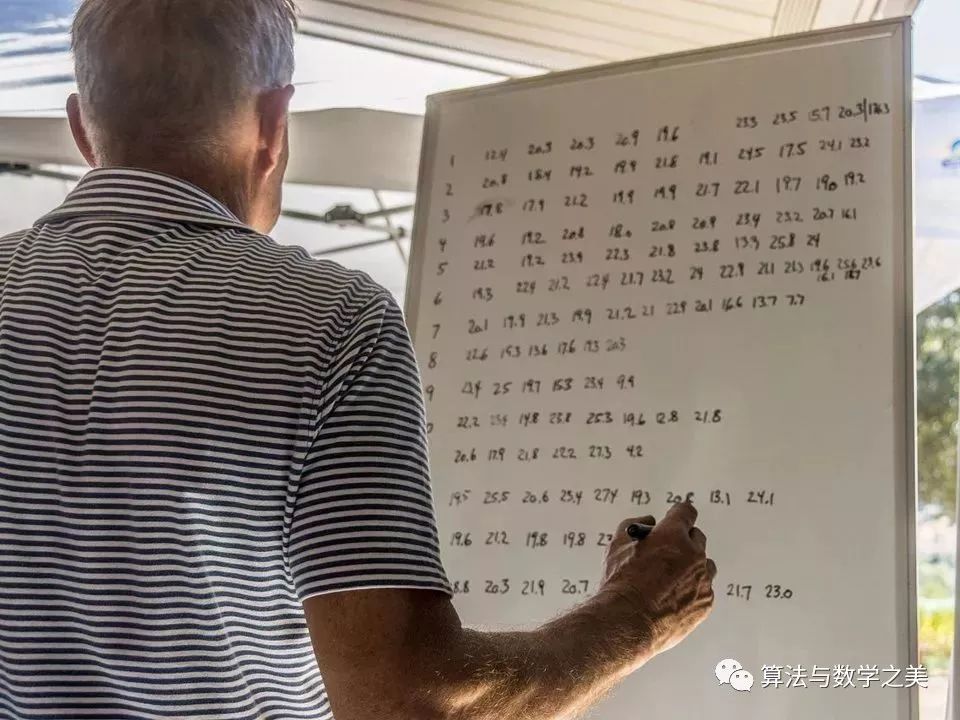 1 12.4 20.3 20.3 20.9 19.6 23.3 23.5 15.7 20.3/
2 20.8 18.4 19.2 19.9 21.8 19.1 24.5 17.5 24.1 23.2
3 17.9 21.2 19.9 19.9 21.7 22.1 19.7 19.0 19.2
4 19.6 19.2 20.8 18.0 20.8 20.9 23.4 23.2 20.7 16.1
5 21.2 19.2 23.9 22.3 21.8 23.8 13.9 25.8 24
6 19.3 22.4 21.2 22.4 21.7 23.2 24 22.9 21.1 21.3 19.6 25.6 23.6
16.1 18.7
7 20.1 19.9 21.3 19.9 21.2 21 22.9 20.1 16.6 13.7 7.7
8 22.6 19.3 13.6 17.6 19.3 20.3
9 25 19.7 15.3 23.4 9.9
22.2 23.4 14.8 23.8 25.3 19.6 12.8 21.8
20.6 17.9 21.8 22.2 27.3 4.2
19.5 25.5 20.6 23.4 27.4 19.3 13.1 24.1
19.6 21.2 19.8 19.8
20.3 21.9 20.7 21.7 23.0
算法与数学之美